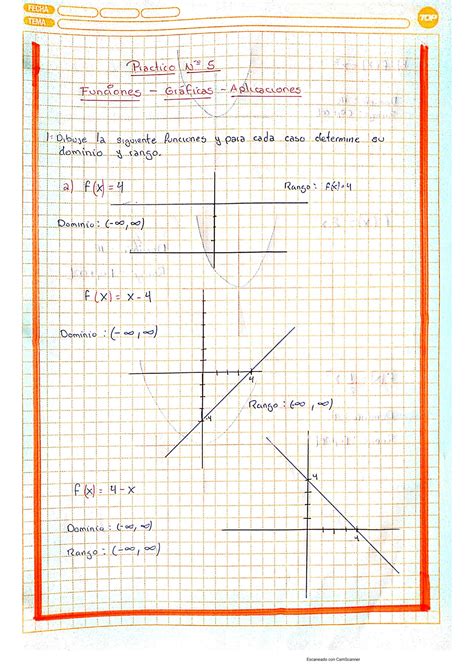 FECHA
TEMA
TOP
Practico Nº 5
Funciones - Gráficas - Aplicaciones
1- Dibuje la siguiente funciones y para cada caso determine su
dominio y rango.
a) f(x) = 4
Rango: f(x)=4
Dominio: (-∞,∞)
f(x) = x-4
Dominio: (-∞,∞)
4
Rango: (-∞,∞)
-4
f(x) = 4-x
4
Dominio: (-∞,∞)
4
Rango: (-∞,∞)
Escaneado con CamScanner